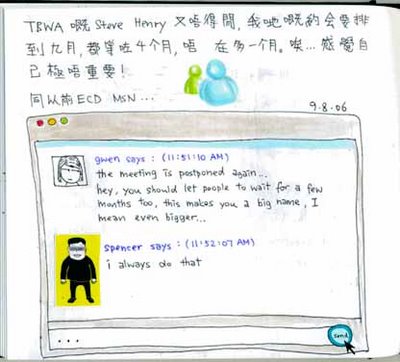 TBWA 嘅 Steve Henry 又唔得閒, 我哋嘅約會要排
到九月, 都等咗4个月, 唔 在多一个月, 唉... 感覺自
己極唔重要!
同以前ECD MSN...
9.8.06
gwen says : (11:51:10 AM)
the meeting is postponed again...
hey, you should let people to wait for a few
months too, this makes you a big name, I
mean even bigger...
spencer says : (11:52:07 AM)
i always do that
...
Send